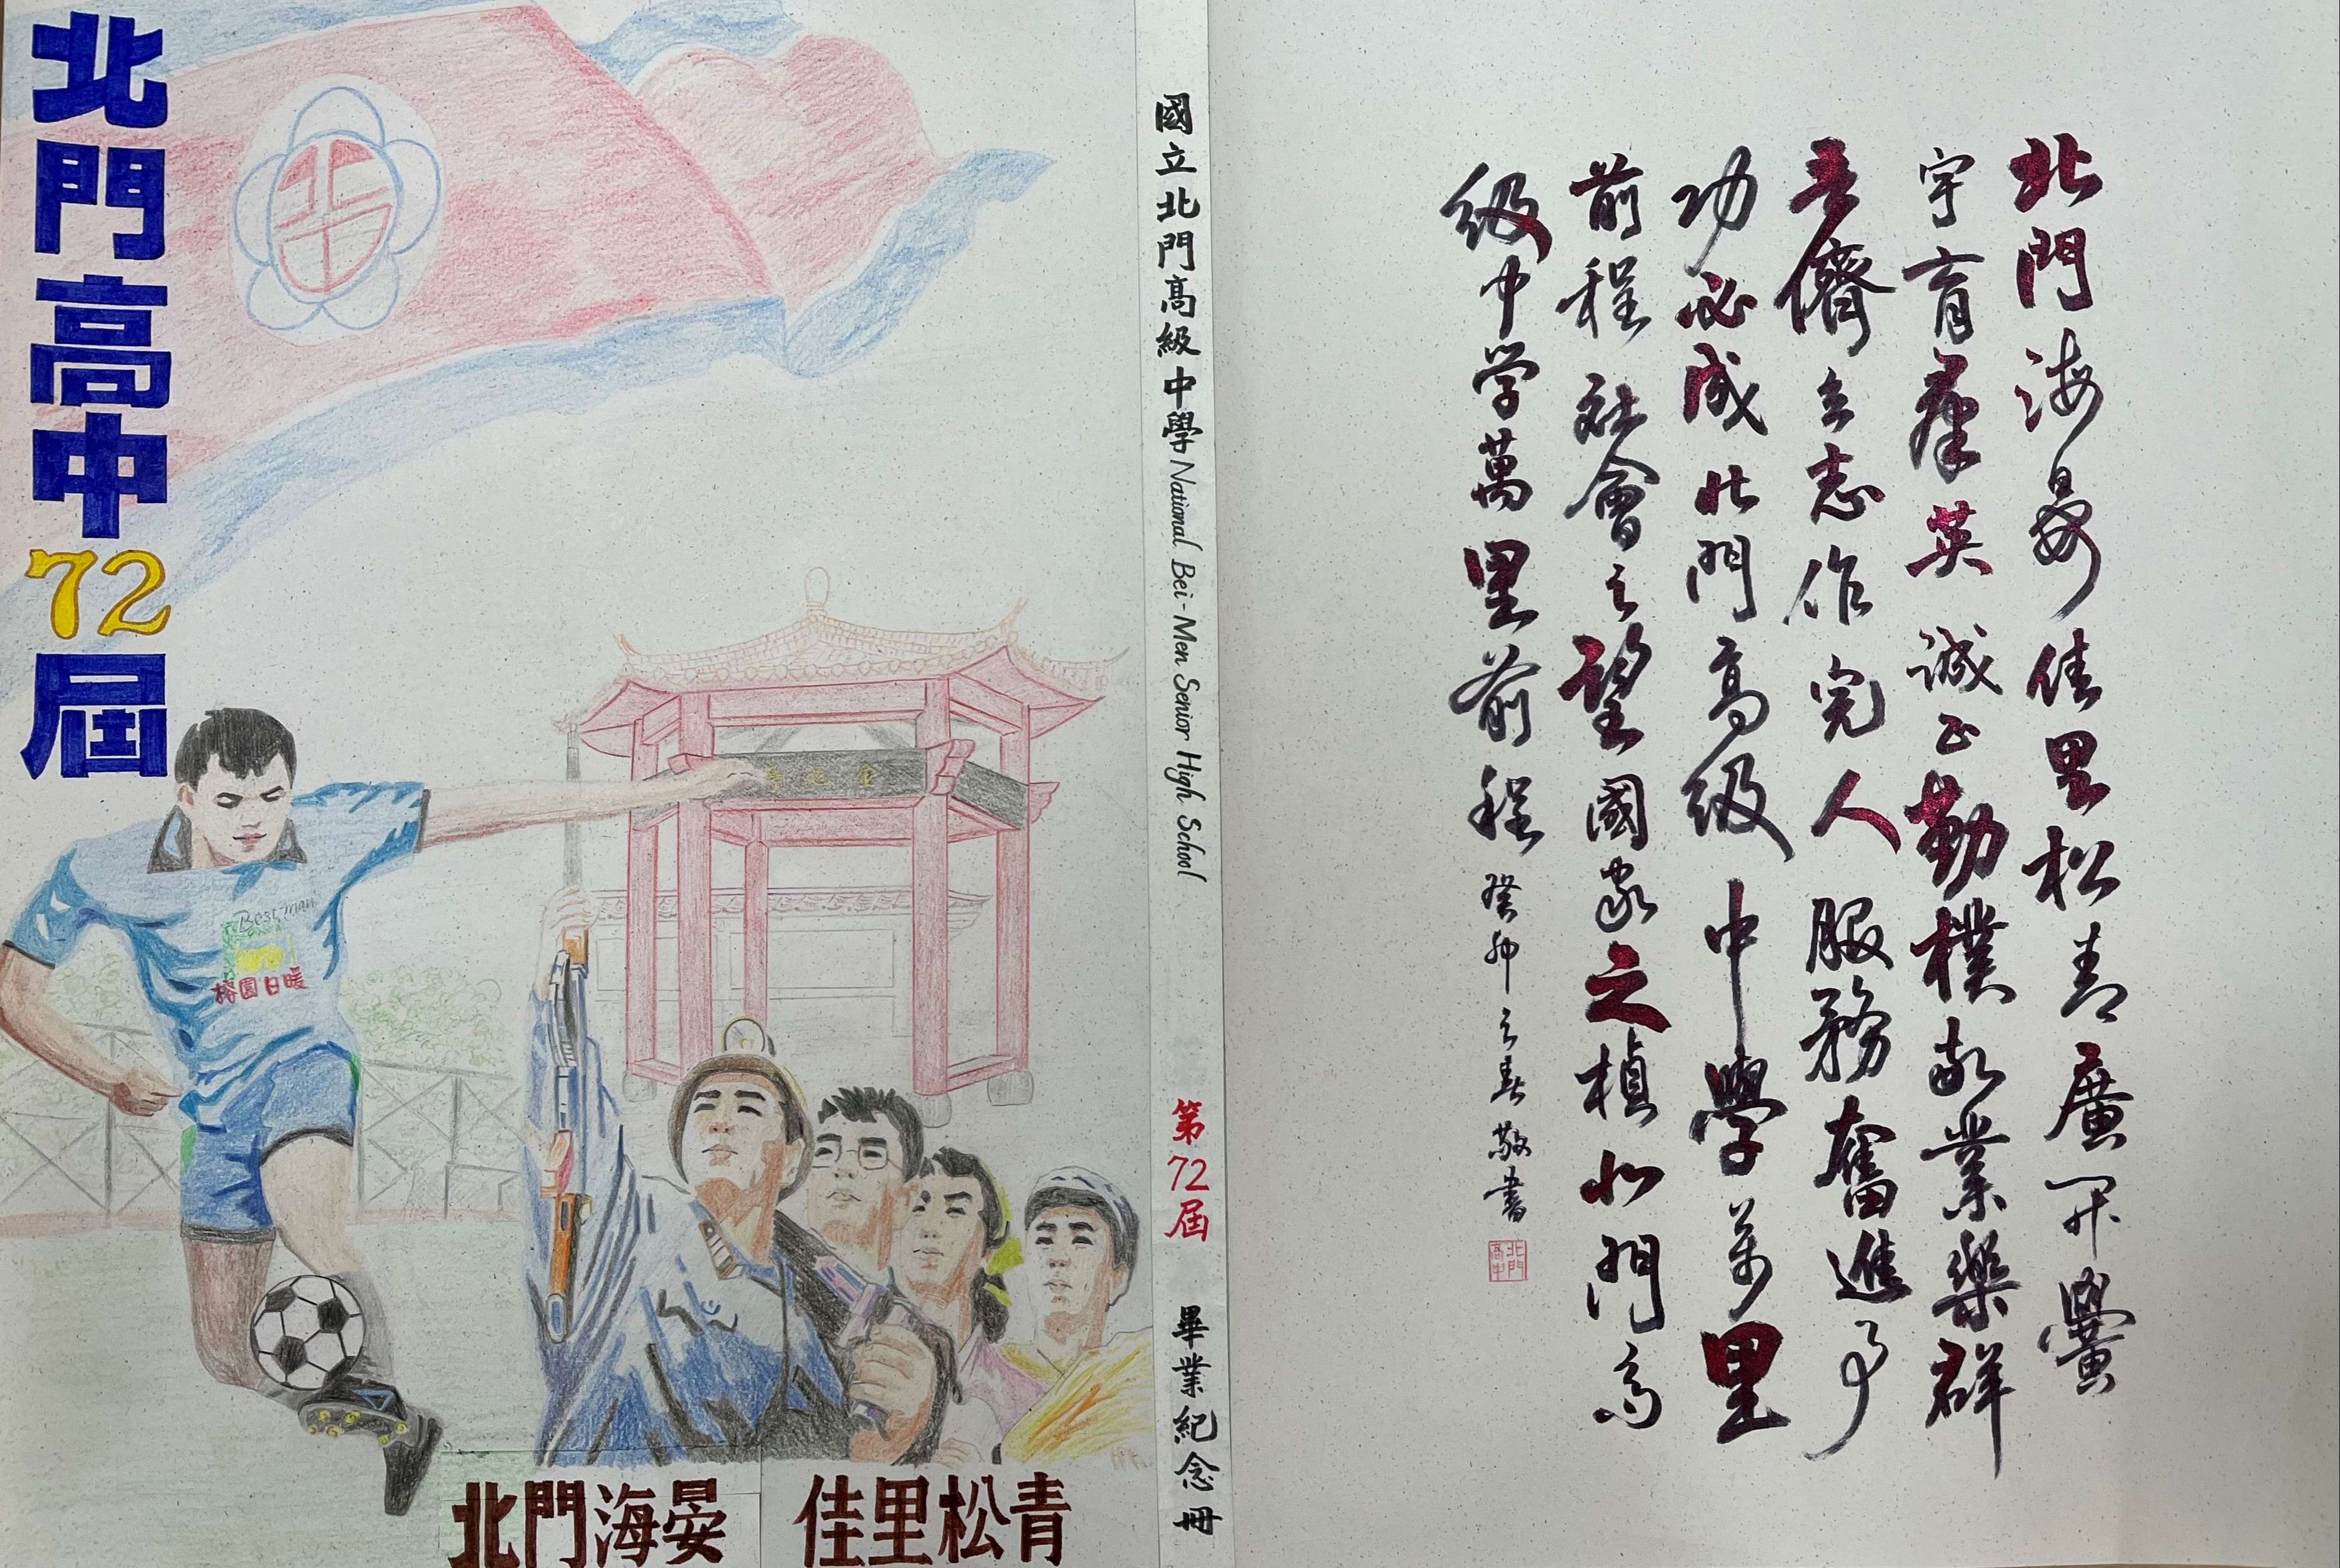 北門高中72屆
Best man
榕園日暖
北門海晏 佳里松青
國立北門高級中學 National Bei-Men Senior High School 第72屆 畢業紀念冊
北門海晏佳里松青廣開黌
宇育群英誠正勤樸敬業樂群
吾儕立志作完人服務奮進事
功必成北門高級中學萬里
前程社會之望國家之楨北門高
級中学萬里前程 癸卯之春敬書
北門高中